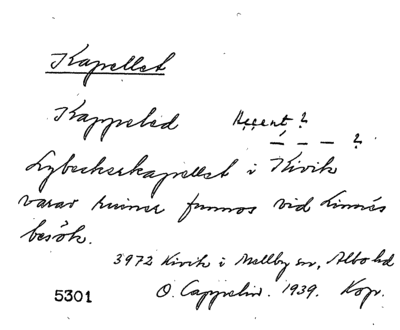 Kapellet
Kappeled Accent?
— — — ?
Lybeckerkapellet i Kivik
varav ruiner funnos vid Linnés
besök.
3972 Kivik i Mellby sn, Albo hd
5301 O. Cappelin. 1939. Kop.